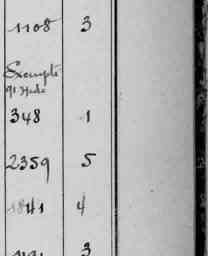 1108 3
Exempté
348 1
2359 5
1841 4
3